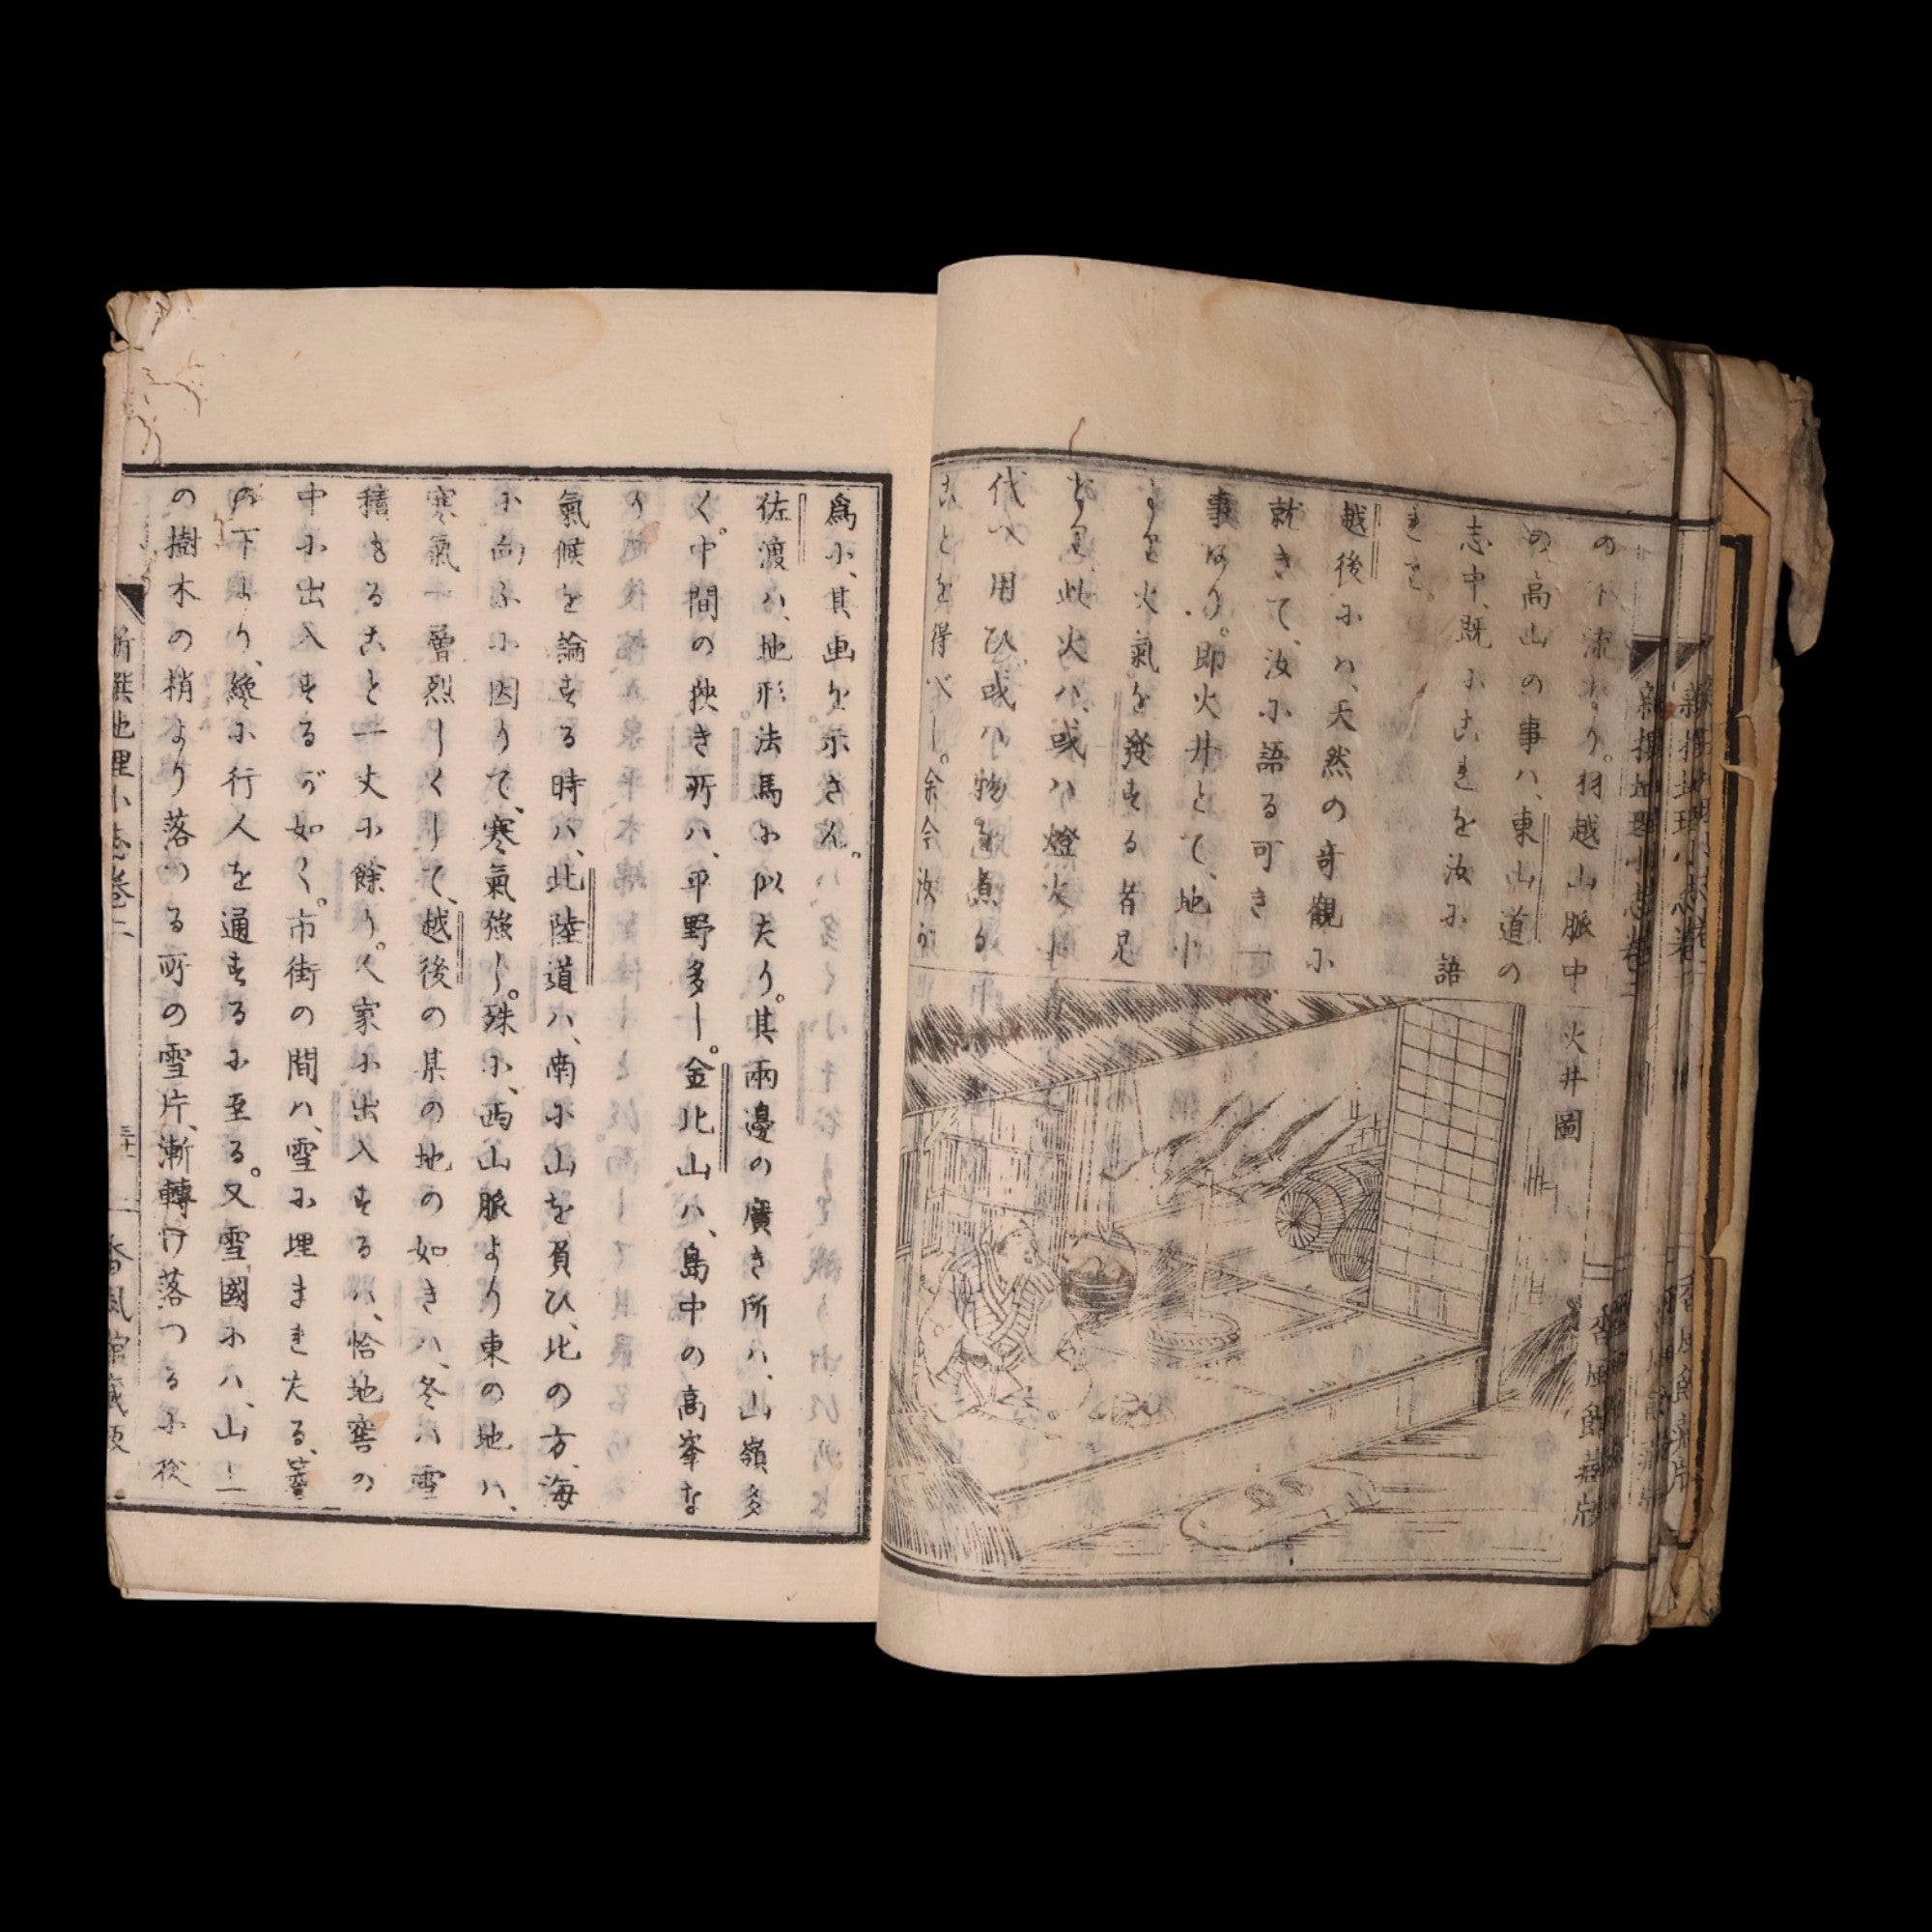 の下流なり。羽越山脈中
の高山の事ハ、東山道の
志中、既に古れを汝に語
れり。
越後にハ、天然の奇觀に
就きて、汝に語る可き
事あり。即火井とて、地中
より火氣を發する者是
なり。此火ハ、或ハ燈火に
代へ用ひ、或ハ物を煮る
ことを得べし。余今汝の
火井圖
爲に、其画を示さん。
佐渡ハ、地形法馬に似たり。其兩邊の廣き所ハ、山嶺多
く。中間の狹き所ハ、平野多し。金北山ハ、島中の高峯な
り
氣候を論する時ハ、此陸道ハ、南に山を負ひ、北の方、海
に向ふに因りて、寒氣強し。殊に、西山脈より東の地ハ、
寒氣一層烈しくして、越後の某の地の如きハ、冬ハ雪
積もること一丈に餘り。人家に出入する時ハ、恰地窖の
中に出入するが如く。市街の間ハ、雪に埋まれたる、簷
の下より、纔に行人を通するに至る。又雪國にハ、山上
の樹木の梢より落つる所の雪片、漸轉け落つるに從
新撰地理小志卷二
三十一
香風館藏版